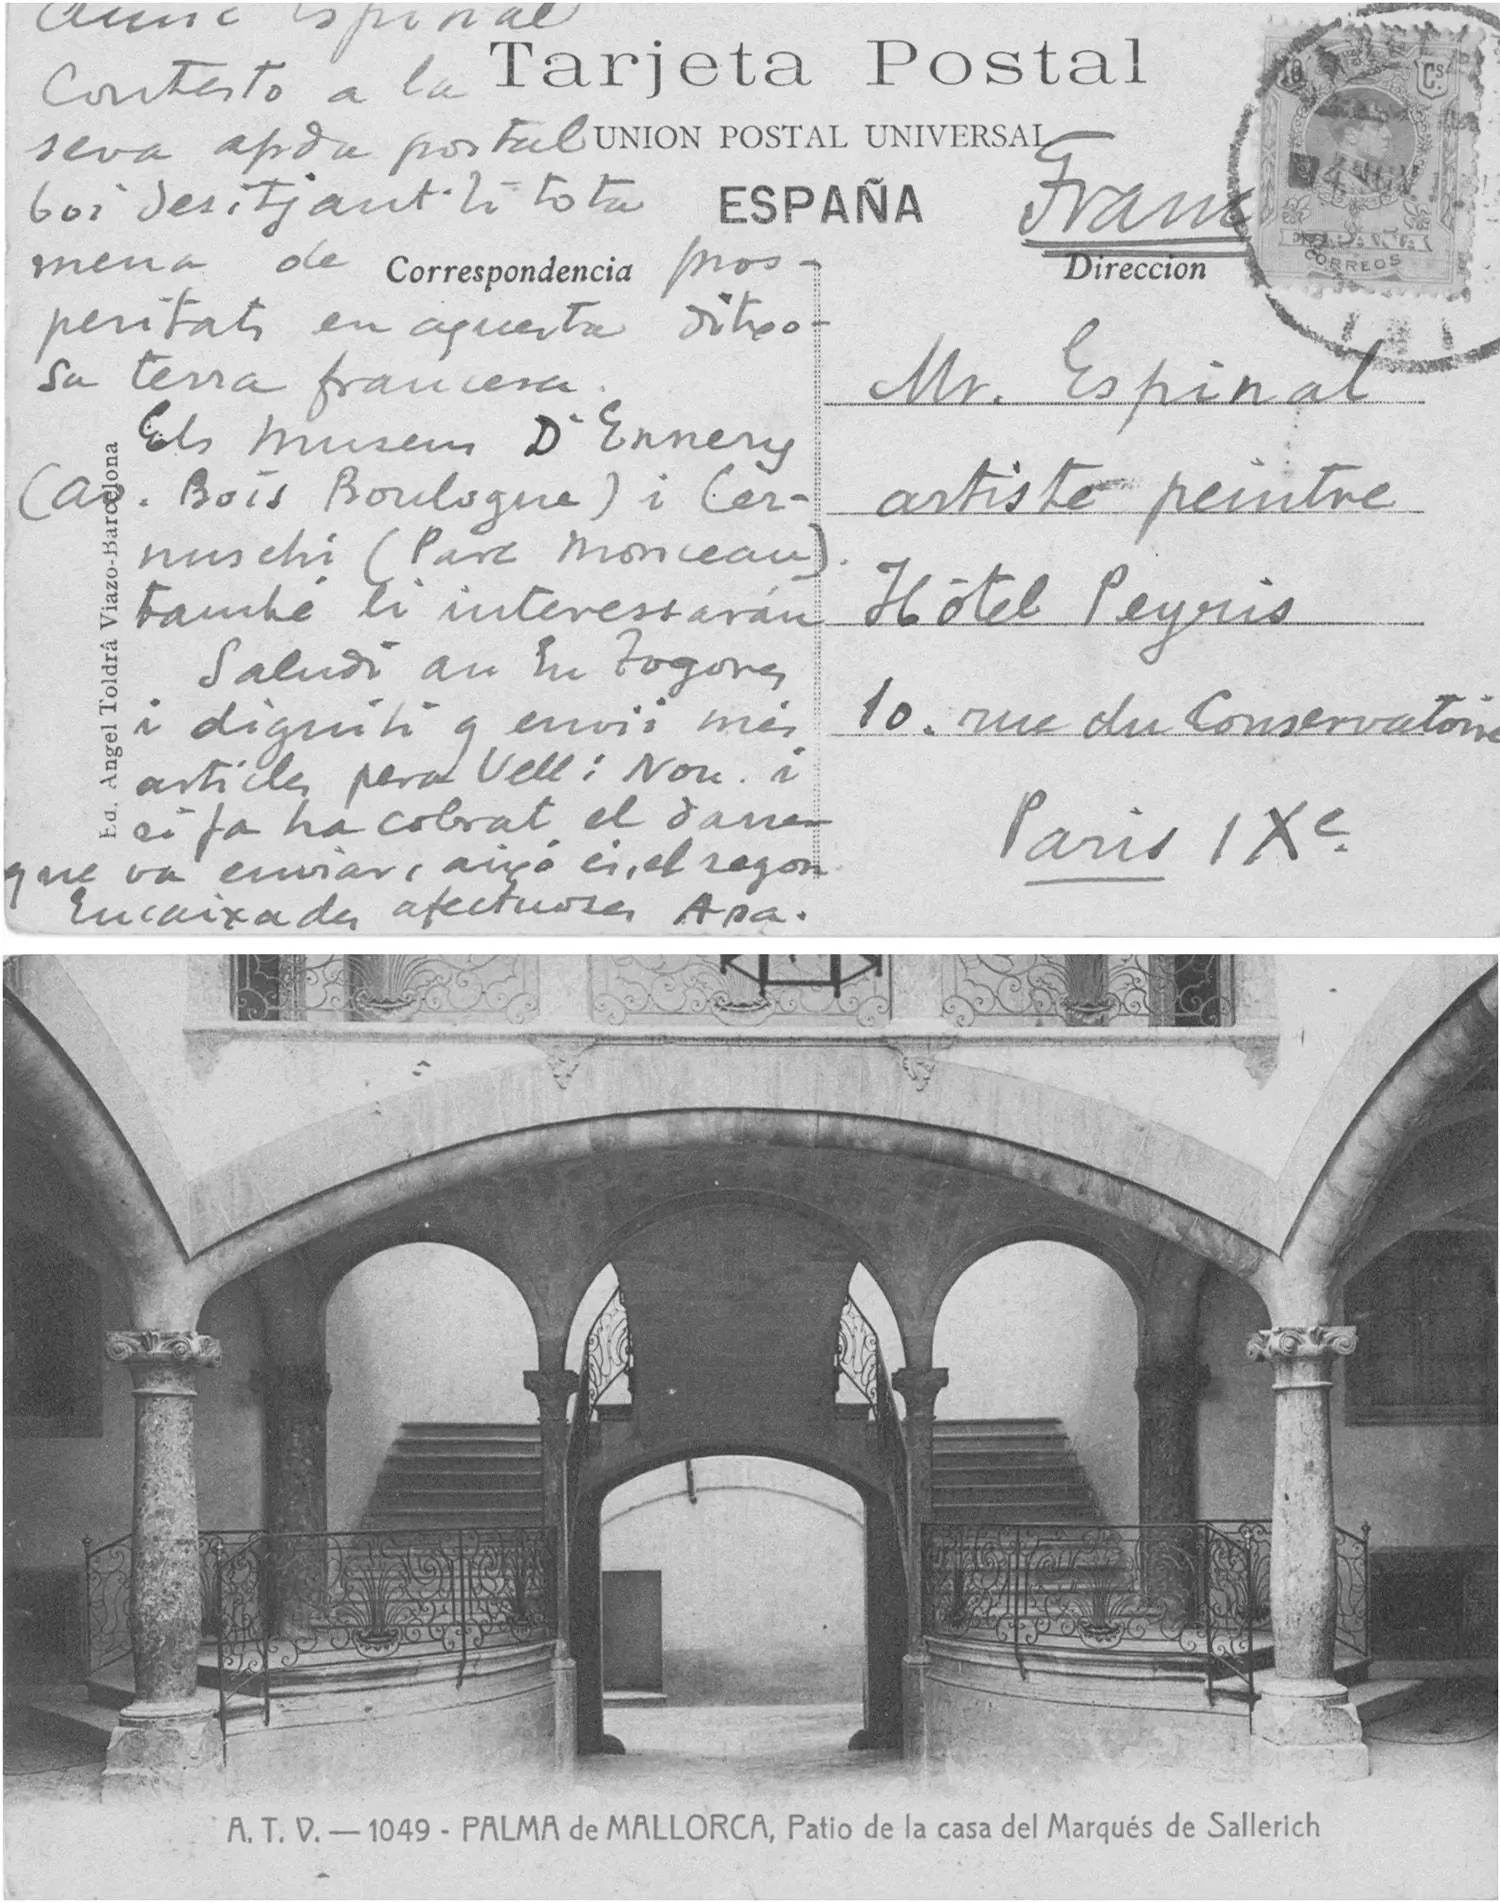 Amic Espinal
Contesto a la
seva apda postal
boi desitjant-li tota
mena de pros-
peritats en aquesta ditxo-
sa terra francesa.
Els museus D'Ennery
(av. Bois Boulogne) i Cer-
nuschi (Parc Monceau).
també li interessarán
Saludi an En Fogores
i digui-li q envii més
articles pera Vell i Nou. i
si ja ha cobrat el darre-
que va enviar, això es, el segon
Encaixades afectuoses Apa.
Tarjeta Postal
UNION POSTAL UNIVERSAL
ESPAÑA
Correspondencia
Direccion
10 Cs
CORREOS
Mr. Espinal
artiste peintre
Hôtel Peyris
10. rue du Conservatoire
Paris IXe
Ed. Angel Toldrá Viazo-Barcelona
A. T. V. — 1049 - PALMA de MALLORCA, Patio de la casa del Marqués de Sallerich